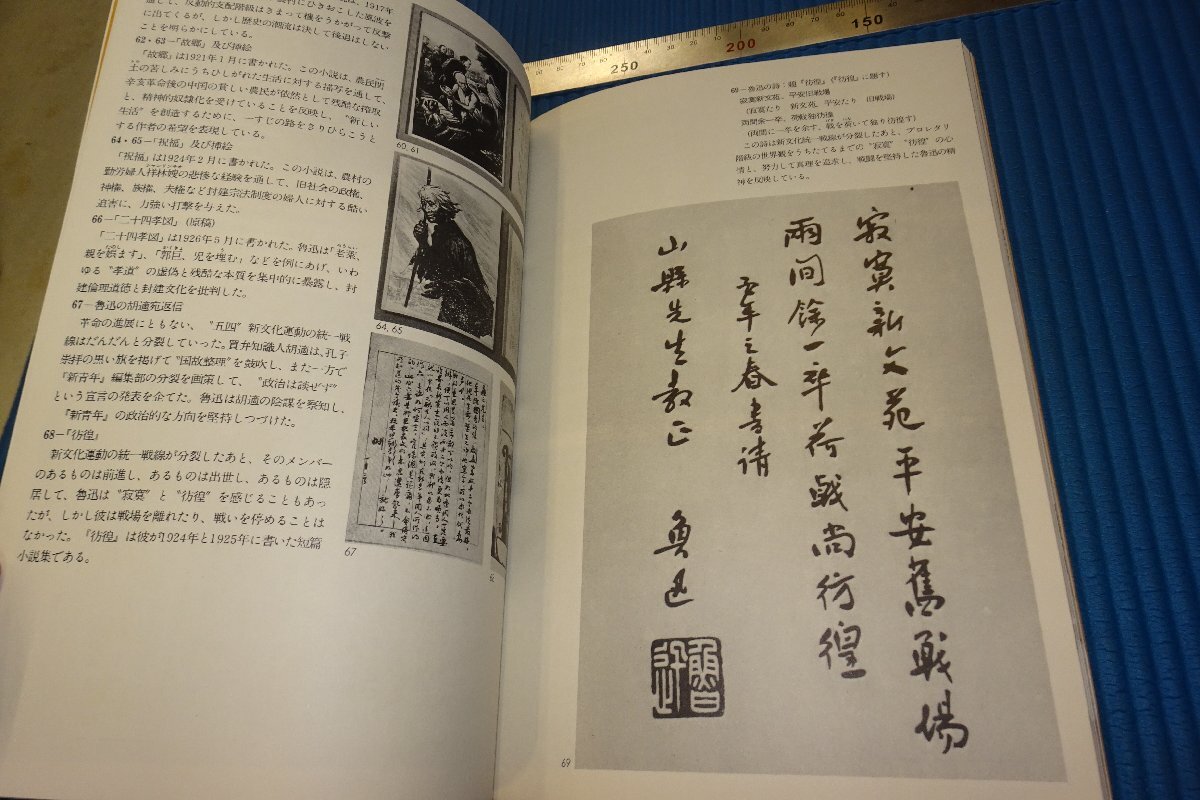 起して、反動的支配階級はきまって機をうかがって反撃
に出てくるが、しかし歴史の潮流は決して後退はしない
ことを明らかにしている。
62・63―「故郷」及び挿絵
「故郷」は1921年1月に書かれた。この小説は、農民閏
土の苦しみにうちひしがれた生活に対する描写を通して、
辛亥革命後の中国の貧しい農民が依然として残酷な搾取
と、精神的奴隷化を受けていることを反映し、〝新しい
生活〟を創造するために、一すじの路をきりひらこうと
する作者の希望を表現している。
64・65―「祝福」及び挿絵
「祝福」は1924年2月に書かれた。この小説は、農村の
勤労婦人祥林嫂の悲惨な経験を通して、旧社会の政権、
神権、族権、夫権など封建宗法制度の婦人に対する酷い
迫害に、力強い打撃を与えた。
66―「二十四孝図」(原稿)
「二十四孝図」は1926年5月に書かれた。魯迅は「老萊、
親を娯ます」、「郭巨、児を埋む」などを例にあげ、いわ
ゆる〝孝道〟の虚偽と残酷な本質を集中的に暴露し、封
建倫理道徳と封建文化を批判した。
67―魯迅の胡適宛返信
革命の進展にともない、〝五四〟新文化運動の統一戦
線はだんだんと分裂していった。買弁知識人胡適は、孔子
崇拝の黒い旗を掲げて〝国故整理〟を鼓吹し、また一方で
『新青年』編集部の分裂を画策して、〝政治は談ぜず〟
という宣言の発表を企てた。魯迅は胡適の陰謀を察知し、
『新青年』の政治的な方向を堅持しつづけた。
68―「彷徨」
新文化運動の統一戦線が分裂したあと、そのメンバー
のあるものは前進し、あるものは出世し、あるものは隠
居して、魯迅は〝寂寞〟と〝彷徨〟を感じることもあっ
たが、しかし彼は戦場を離れたり、戦いを停めることは
なかった。『彷徨』は彼が1924年と1925年に書いた短篇
小説集である。
60. 61
64. 65
67
250
200
150
69―魯迅の詩:題『彷徨』(『彷徨』に題す)
寂寞新文苑、平安旧戦場
(寂寞たり 新文苑、平安たり 旧戦場)
両間余一卒、荷戟独彷徨
(両間に一卒を余す、戟を荷いて独り彷徨す)
この詩は新文化統一戦線が分裂したあと、プロレタリ
階級の世界観をうちたてるまでの〝寂寞〟〝彷徨〟の心
情と、努力して真理を追求し、戦闘を堅持した魯迅の精
神を反映している。
寂寞新文苑平安舊戰場
兩間餘一卒荷戟尚彷徨
酉年之春書請
山縣先生教正 魯迅
69